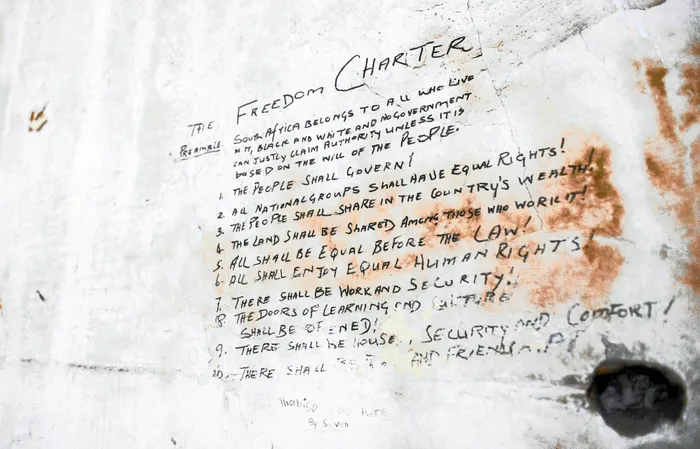 THE FREEDOM CHARTER
PREAMBLE SOUTH AFRICA BELONGS TO ALL WHO LIVE
IN IT, BLACK AND WHITE AND NO GOVERNMENT
CAN JUSTLY CLAIM AUTHORITY UNLESS IT IS
BASED ON THE WILL OF THE PEOPLE.
1. THE PEOPLE SHALL GOVERN!
2. ALL NATIONAL GROUPS SHALL HAVE EQUAL RIGHTS!
3. THE PEOPLE SHALL SHARE IN THE COUNTRY'S WEALTH!
4. THE LAND SHALL BE SHARED AMONG THOSE WHO WORK IT!
5. ALL SHALL BE EQUAL BEFORE THE LAW!
6. ALL SHALL ENJOY EQUAL HUMAN RIGHTS!
7. THERE SHALL BE WORK AND SECURITY!
8. THE DOORS OF LEARNING AND CULTURE
SHALL BE OPENED!
9. THERE SHALL BE HOUSE, SECURITY AND COMFORT!
10. THERE SHALL BE AND FRIENDSH
Thabiso was here
By